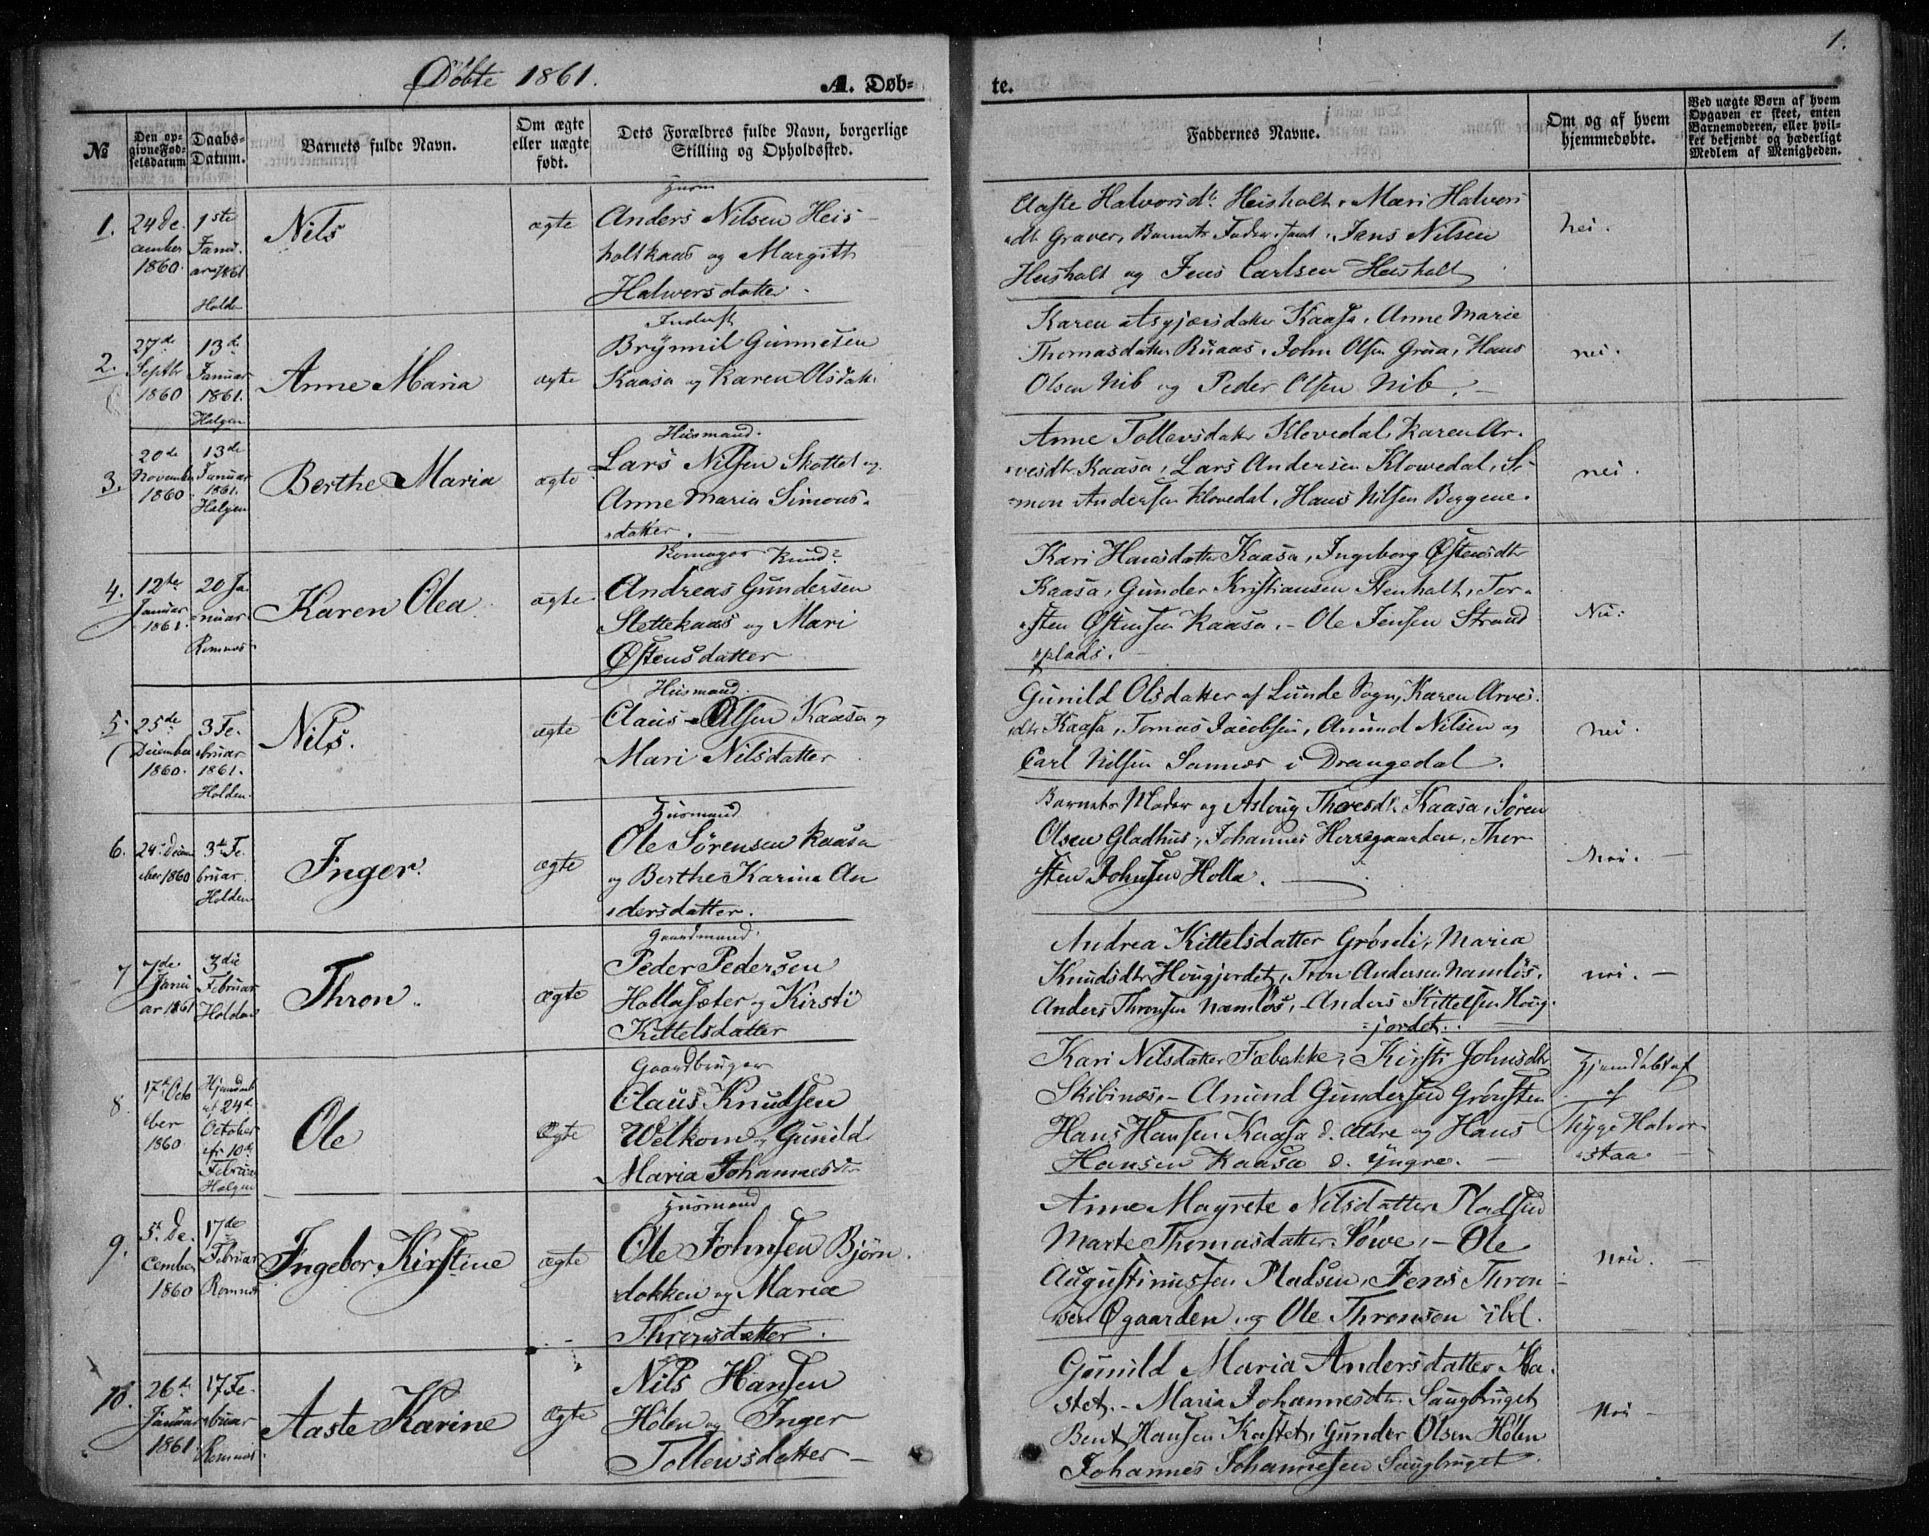 Døbte 1861.
A. Døb-
te.
1.
№
Den op-
givne Fød-
selsdatum
Daabs-
Datum.
Barnets fulde Navn.
Om ægte
eller uægte
født.
Dets Forældres fulde Navn, borgerlige
Stilling og Opholdssted.
Faddernes Navne.
Om og af hvem
hjemmedøbte.
Ved uægte Børn af hvem
Opgaven er skeet, enten
Barnemoderen, eller hvil-
ket bekjendt og hæderligt
Medlem af Menigheden.
1.
24 De-
cember
1860.
1ste
Janu-
ar 1861
Holden
Nils
ægte
Anders Nilsen Heis-
holtkaas og Margith
Halvorsdatter.
Aaste Halvorsdt. Heisholt, Mari Halvors
dt. Graver, Barnets Fader, samt, Jens Nilsen
Heisholt og Jens Carlsen Heisholt
nei.
2.
27de
Septbr
1860
13de
Januar
1861.
Helgen
Anne Maria
ægte
Inderst
Brynnil Gunnesen
Kaasa og Karen Olsdatr
Karen Kaasa, Anne Marie
Thomasdatter Ruaas, John Olsen Grua, Hans
Olsen Nib og Peder Olsen Nib.
nei.
3.
20de
November
1860
13de
Januar
1861.
Helgen
Berthe Maria
ægte
Husmand.
Lars Nilsen Skottet og
Anne Maria Simons-
datter.
Anne Tollevsdatter Klovedal, Karen Ar-
vesdtr Kaasa, Lars Andersen Klovedal, Si-
mon Andersen Klovedal, Hans Nilsen Bergene.
nei
4.
12te
Januar
1861.
20 Ja-
nuar
Romnes
Karen Olea
ægte.
Andreas Gundersen
Slettekaas og Mari
Østensdatter
Kari Hansdatter Kaasa, Ingeborg Østensdtr
Kaasa, Gunder Kristiansen Stenholt, Tor-
sten Østensen Kaasa. - Ole Jensen Strand
plads.
Nei
5.
25de
December
1860.
3 Fe-
bruar
1861.
Holden.
Nils.
ægte
Husmand.
Claus Olsen Kaasa og
Mari Nilsdatter
Gunild Olsdatter af Lunde Sogn, Karen Arves-
dtr Kaasa, Tomas Jacobsen, Amund Nilsen og
Carl Nilsen Sannes i Drangedal.
nei.
6.
24 Decem
ber 1860
3de Fe
bruar.
Holden
Inger.
ægte
Husmand
Ole Sørensen Kaasa
og Berthe Karine An
dersdatter.
Barnets Moder og Asloug Thoresdt. Kaasa, Søren
Olsen Gladhus, Johannes Herregaarden, Thor-
sten Johnsen Holla.
Nei.
7
7de
Janu
ar 1861
3die
Februar
Holden
Thron.
ægte
Gaardmand.
Peder Pedersen
Hollasæter og Kirsti
Kittelsdatter
Andrea Kittelsdatter Grønli, Maria
Knudsdtr Hougjordet, Tron Andersen Namløs,
Anders Thronsen Namløs, Anders Kittelsen Houg-
jordet.
nei.
8.
17de Octo
ber
1860
Hjemdøbt
24de
October
10de
Februar
Helgen
Ole
Ægte
Gaardbruger
Claus Knudsen
Welkom og Gunild
Maria Johannesdtr
Kari Nilsdatter Fæbakke, Kirsti Johnsdtr
Skibinæs, - Amund Gundersen Grønsten
Hans Hansen Kaasa d. ældre og Hans
Hansen Kaasa d. Yngre.
Hjemdøbt af
af
Thyge Halvor-
staa
9.
5. De-
cember
1860
17de
Februar
Romnes
Ingebor Kirstine
ægte
Husmand
Ole Johnsen Bjørn-
dokken og Maria
Thronsdatter.
Anne Magrete Nilsdatter Pladsen
Marte Thomasdatter Søwe, - Ole
Augustinussen Pladsen, Jens Thron-
sen Øgaarden, og Ole Thronsen ibd.
Nei.
10.
26de
Januar
1861
17 Fe-
bruar
Romnes.
Aaste Karine
Ægte
Nils Hansen
Hølen og Inger
Tollewsdatter
Gunild Maria Andersdatter Ka-
stet. - Maria Johannesdtr. Saugbruget
Bent Hansen Kastet, Gunder Olsen Hølen
Johannes Johannesen Saugbruget
Nei